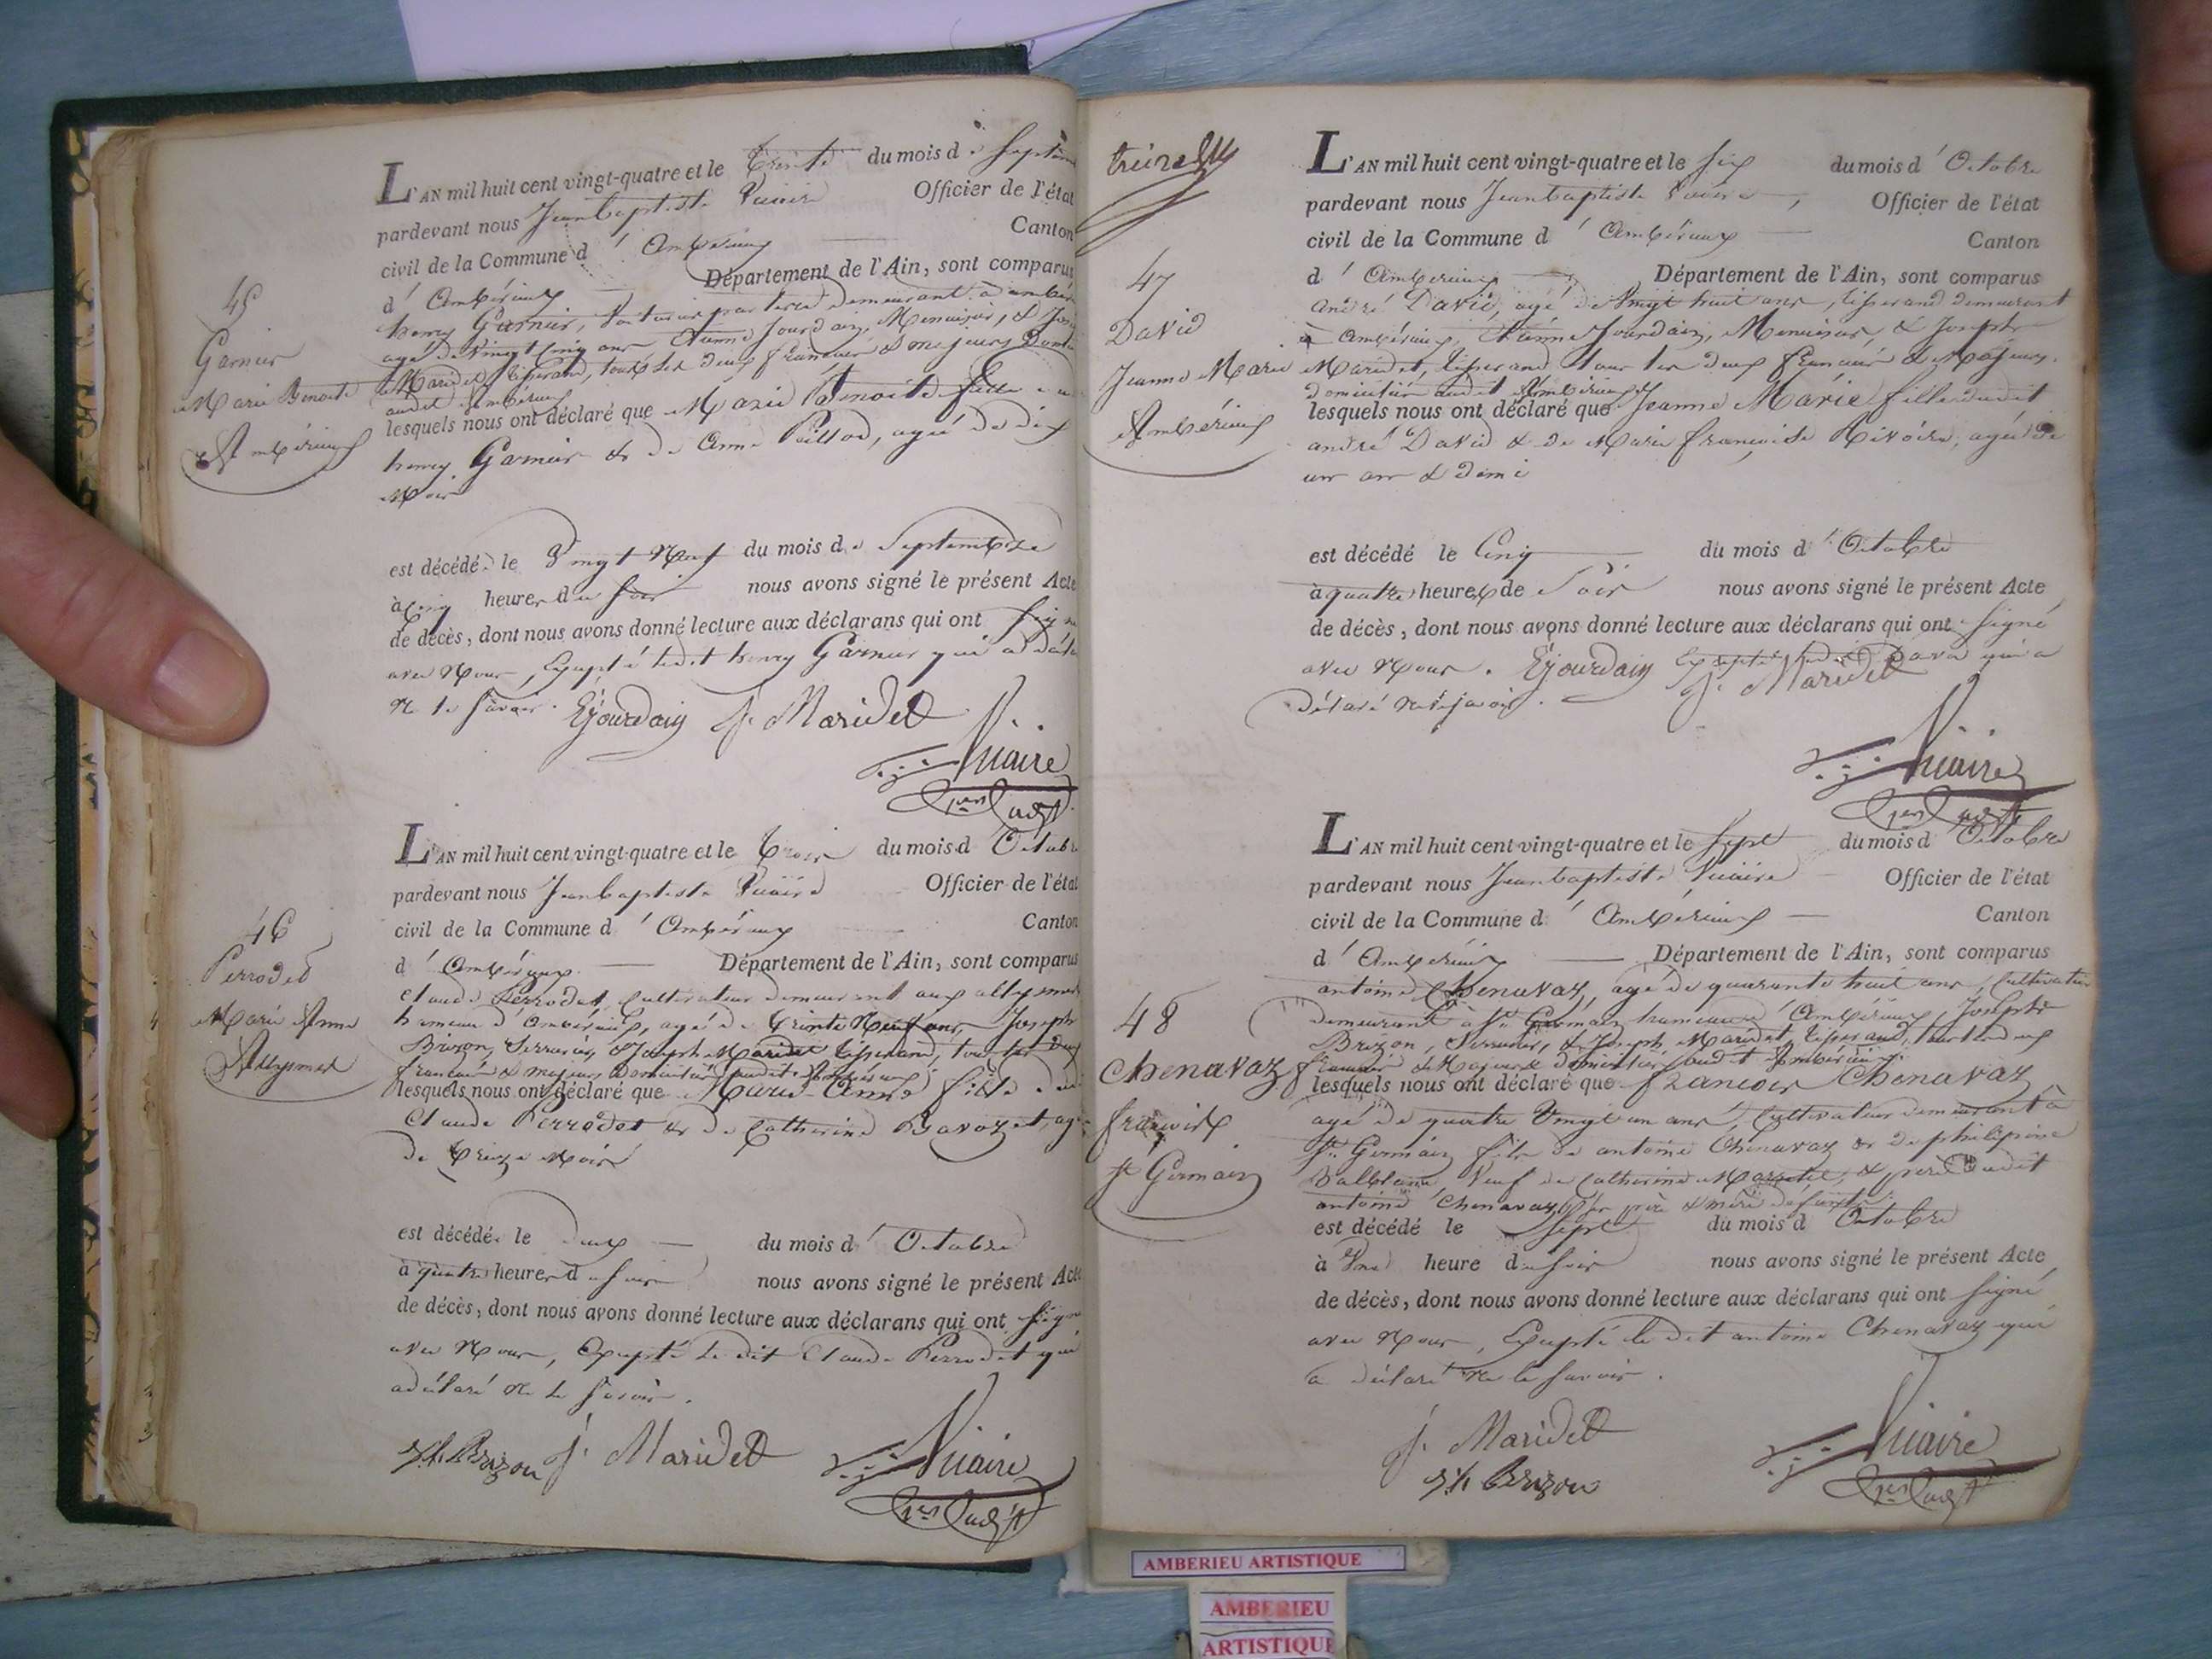 45
Garnier
Marie Benoite
Ambérieux
L'AN mil huit cent vingt-quatre et le trente du mois de Septem
pardevant nous Jeanbaptiste Vicaire Officier de l'état
civil de la Commune d'Ambérieux Canton
d'Ambérieux Département de l'Ain, sont comparus
henry Garnier, demeurant à
agé de vingt cinq ans Etienne Jourdain, Menuisier, &
Maridet tisserand, tous les deux français & majeurs
audit Ambérieux
lesquels nous ont déclaré que Marie Benoite fille
henry Garnier & de Anne Pillod, agée de dix
Mois
est décédé le Vingt Neuf du mois de Septembre
à Cinq heures du Soir nous avons signé le présent Acte
de décès, dont nous avons donné lecture aux déclarans qui ont Signé
avec Nous, Excepté ledit henry Garnier qui a
Ne le Savoir. Ejourdain J. Maridet
Vicaire
46
Perrodet
Marie Anne
Allymes
L'AN mil huit cent vingt-quatre et le trois du mois d'Octob
pardevant nous Jeanbaptiste Vicaire Officier de l'état
civil de la Commune d'Ambérieux Canton
d'Ambérieux Département de l'Ain, sont comparus
Claude Perrodet, Cultivateur demeurant aux allymes
hameau d'Ambérieux, agé de trente Neuf ans, Joseph
Brizon, Serrurier, & Joseph Maridet tisserand, tous les deux
français & majeurs domiciliés audit Ambérieux
lesquels nous ont déclaré que Marie-Anne fille
Claude Perrodet & de Catherine Bavozet, agé
de treize Mois
est décédé le deux du mois d'Octobre
à quatre heures du Soir nous avons signé le présent Acte
de décès, dont nous avons donné lecture aux déclarans qui ont signé
avec Nous, Excepté le dit Claude Perrodet qui
a déclaré Ne le Savoir.
Jh. Brizon J. Maridet Vicaire
47
David
Jeanne Marie
Ambérieux
L'AN mil huit cent vingt-quatre et le six du mois d'Octobre
pardevant nous Jeanbaptiste Vicaire, Officier de l'état
civil de la Commune d'Ambérieux Canton
d'Ambérieux Département de l'Ain, sont comparus
André David, agé de vingt huit ans, tisserand demeurant
à Ambérieux, Etienne Jourdain, Menuisier, & Joseph
Maridet, tisserand tous les deux français & Majeurs
domiciliés audit Ambérieux
lesquels nous ont déclaré que Jeanne Marie fille dudit
andré David & de Marie françoise Rivoire, agée de
un an & demi
est décédé le Cinq du mois d'Octobre
à quatre heures de Soir nous avons signé le présent Acte
de décès, dont nous avons donné lecture aux déclarans qui ont signé
avec Nous. Ejourdain Excepté ledit David qui a
déclaré ne le savoir. J. Maridet
Vicaire
48
Chenavaz
françois
St Germain
L'AN mil huit cent vingt-quatre et le sept du mois d'Octobre
pardevant nous Jeanbaptiste Vicaire Officier de l'état
civil de la Commune d'Ambérieux Canton
d'Ambérieux Département de l'Ain, sont comparus
antoine Chenavaz, agé de quarante huit ans, Cultivateur
demeurant à St Germain hameau d'Ambérieux, Joseph
Brizon, Serrurier, & Joseph Maridet, tisserand, tous les deux
français & Majeurs domiciliés audit Ambérieux.
lesquels nous ont déclaré que françois Chenavaz
agé de quatre Vingt un ans, Cultivateur demeurant à
St Germain fils de antoine Chenavaz & de philipine
Veuf de Catherine & père dudit
antoine Chenavaz, ses père & mère défunts
est décédé le Sept du mois d'Octobre
à Une heure du Soir nous avons signé le présent Acte
de décès, dont nous avons donné lecture aux déclarans qui ont signé
avec Nous, Excepté le dit antoine Chenavaz qui
a déclaré Ne le Savoir.
J. Maridet
Jh Brizon Vicaire
AMBERIEU ARTISTIQUE
AMBERIEU
ARTISTIQUE